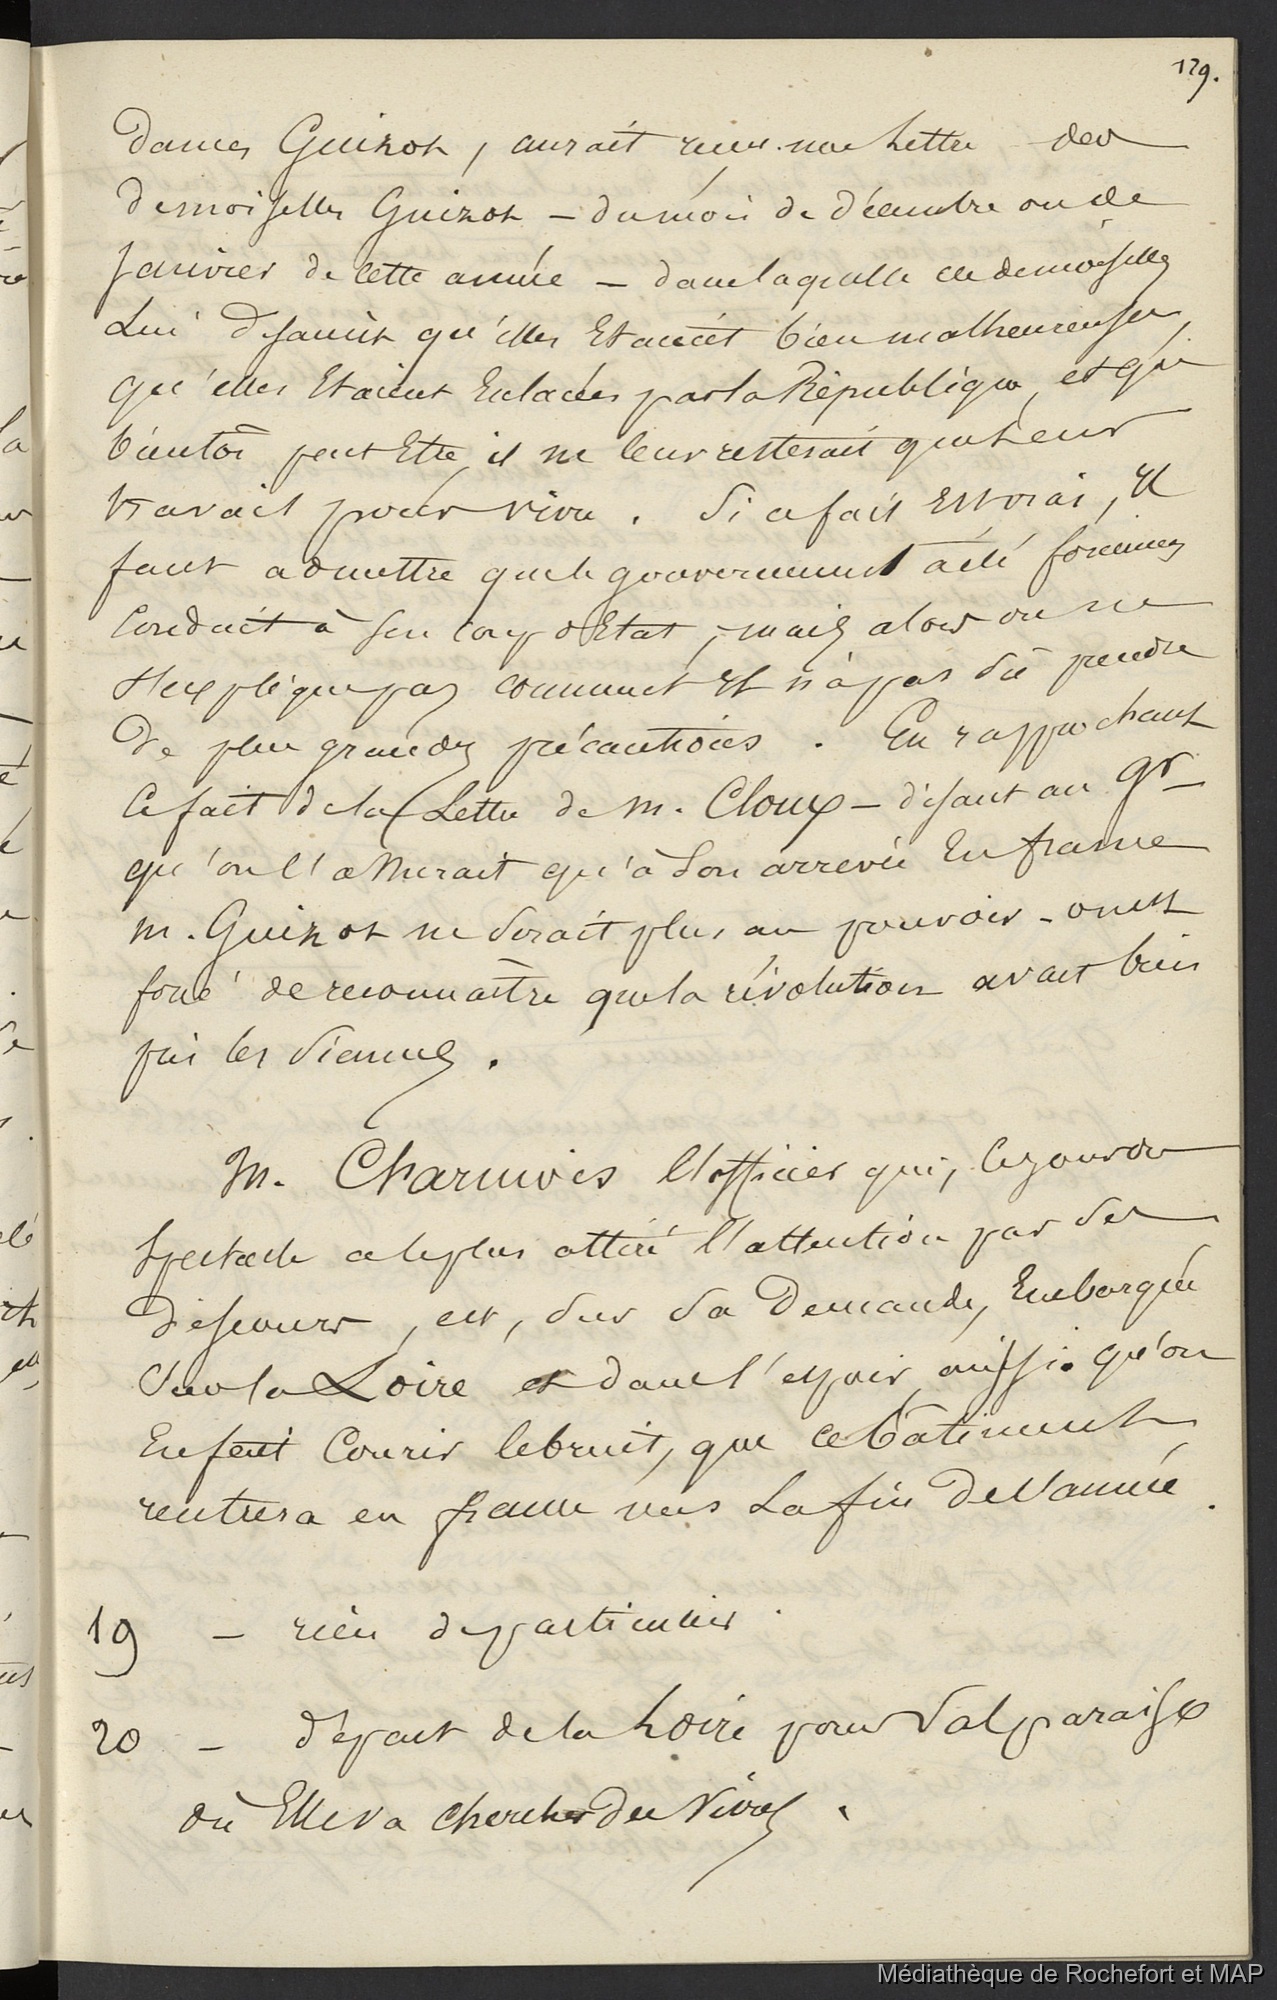 129.
dames Guizot, aurait reçu une Lettre des
demoiselles Guizot – du mois de décembre ou de
Janvier de cette année – dans laquelle ces demoiselles
Lui disaient qu'elles Etaient bien malheureuses,
qu'elles Etaient Enlacées par la République, et que
bientôt peut Etre, il ne leur resterait que leur
travail pour vivre. Si ce fait Est vrai, il
faut admettre que le gouvernement a été
conduit à son coup d'Etat, mais alors on ne
s'explique pas comment il n'a pas dû prendre
de plus grandes précautions. En rapprochant
Ce fait de la Lettre de M. Cloux – disant au Gr
qu'on l'assurait qu'à son arrivée En france
M. Guizot ne serait plus au pouvoir – on est
forcé de reconnaître que la révolution avait bien
pris les siennes.
M. Charmois l'officier qui, le jour du
Spectacle a le plus attiré l'attention par ses
discours, est, sur sa Demande, Embarqué
sur la Loire et dans l'espoir aussi qu'on
En fesait Courir le bruit, que ce bâtiment
rentrera en france vers La fin De l'année.
19 – rien de particulier.
20 – départ de la Loire pour Valparaiso
où Elle va chercher des Vivres.
Médiathèque de Rochefort et MAP